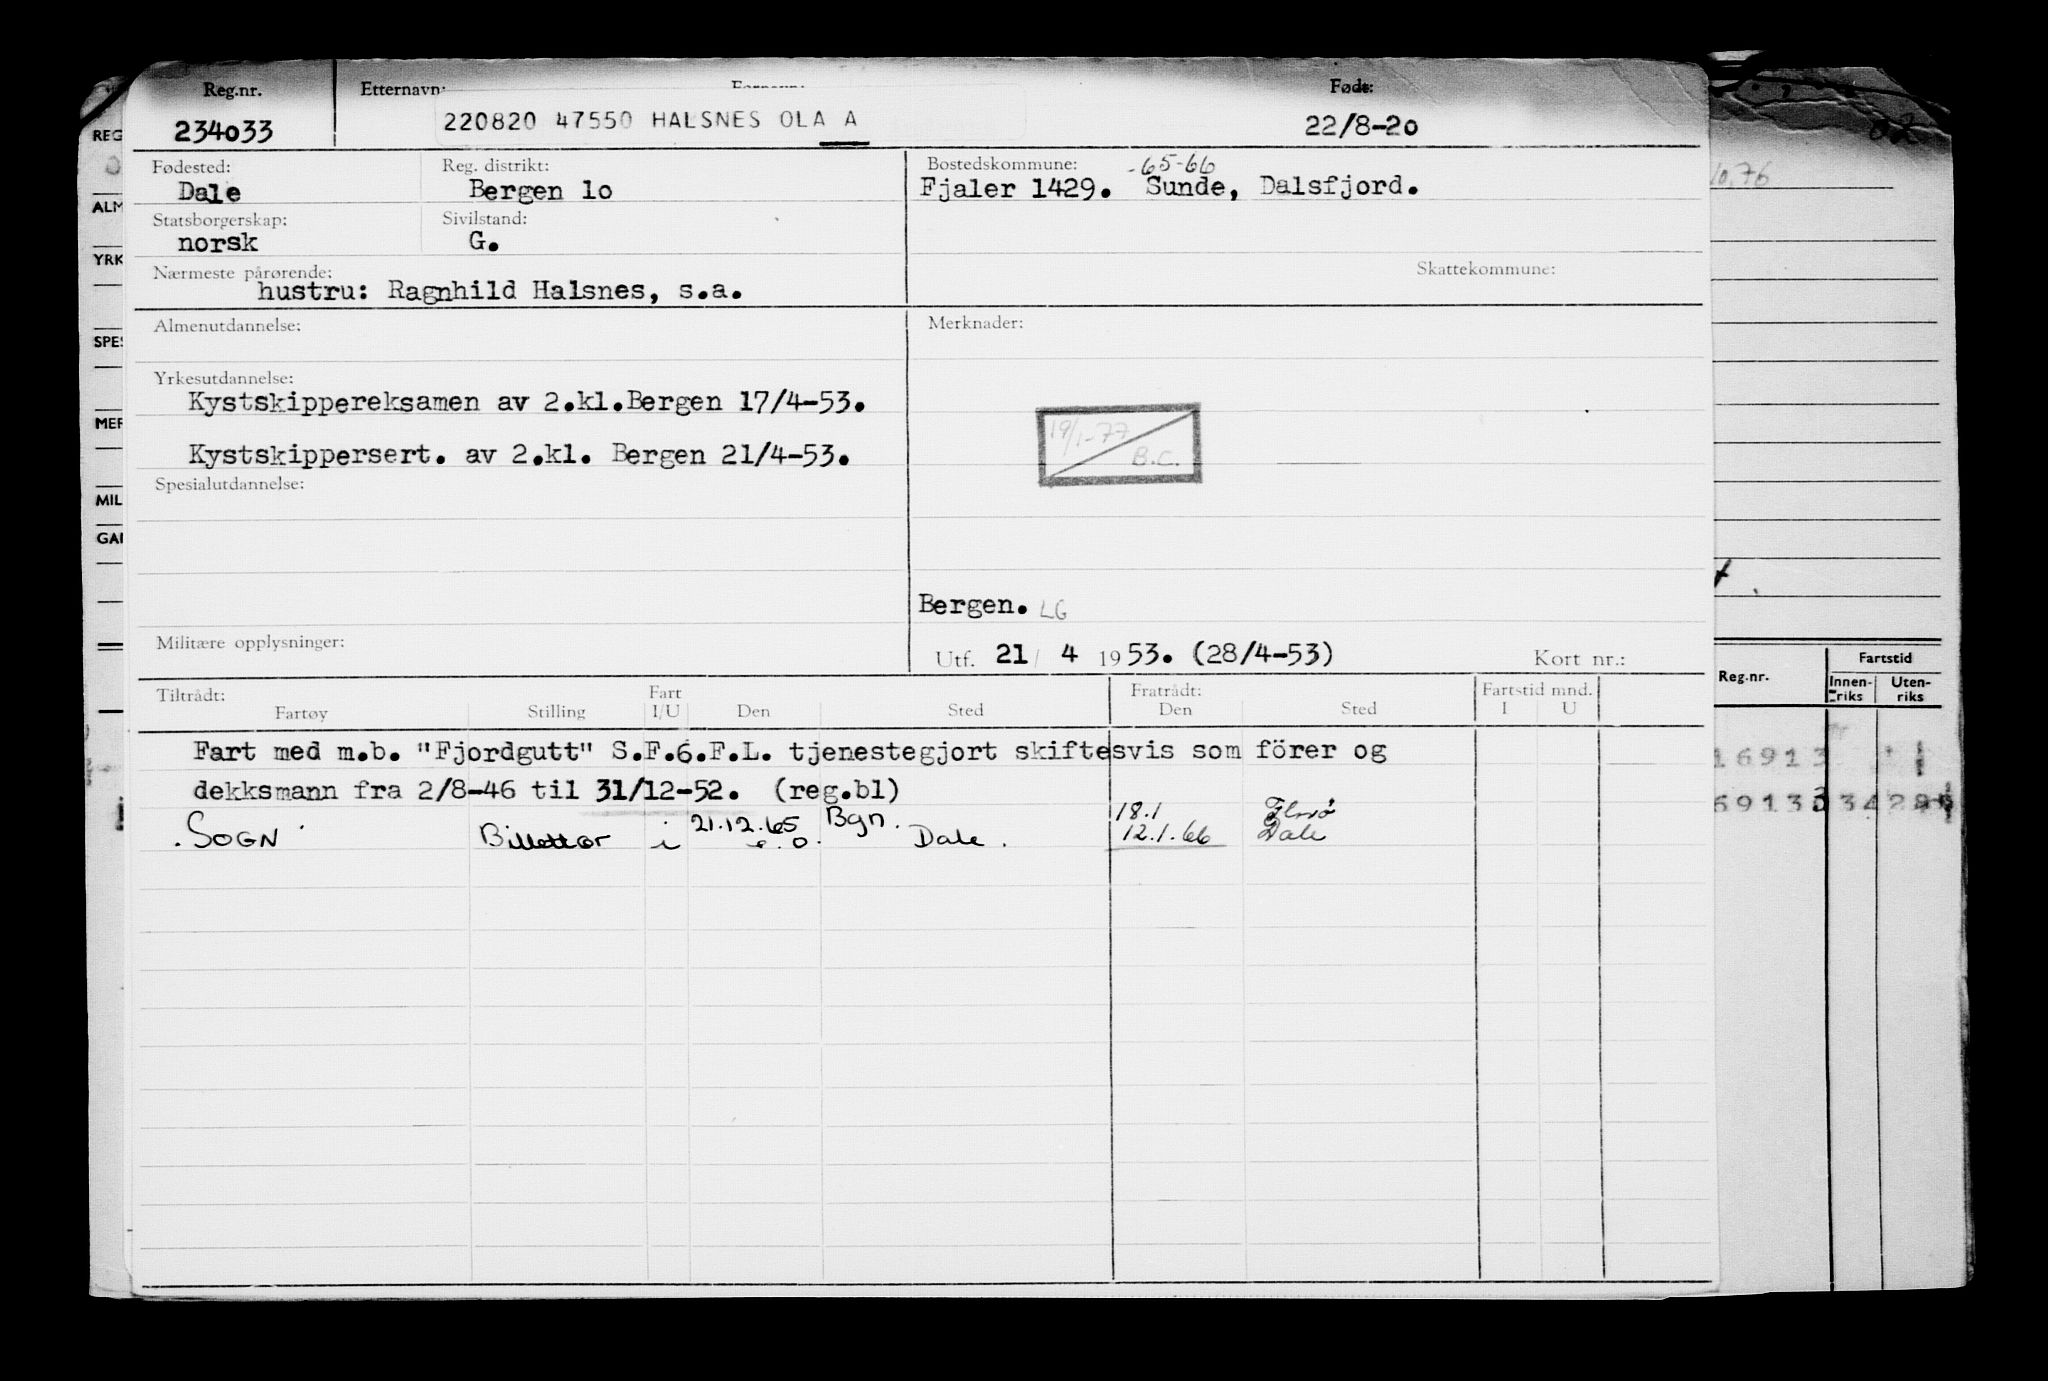 Reg.nr. Etternavn: Født:
234033 220820 47550 HALSNES OLA A 22/8-20
Fødested: Reg. distrikt: Bostedskommune: -65-66
Dale Bergen 1o Fjaler 1429. Sunde, Dalsfjord.
Statsborgerskap: Sivilstand:
norsk G.
Nærmeste pårørende: Skattekommune:
hustru: Ragnhild Halsnes, s.a.
Almenutdannelse: Merknader:
Yrkesutdannelse:
Kystskippereksamen av 2.kl.Bergen 17/4-53.
19/1-77
Kystskippersert. av 2.kl. Bergen 21/4-53.
B.C.
Spesialutdannelse:
Bergen. LG
Militære opplysninger:
Utf. 21/ 4 1953. (28/4-53) Kort nr.:
Tiltrådt: Fart Fratrådt: Fartstid mnd.
Fartøy Stilling I/U Den Sted Den Sted I U
Fart med m.b. "Fjordgutt" S.F.6.F.L. tjenestegjort skiftesvis som förer og
dekksmann fra 2/8-46 til 31/12-52. (reg.bl)
21.12.65 Bgn. 18.1 Florø
SOGN Billettør i Dale. 12.1.66 Dale
REG
ALM
YRK
SPES
MER
MIL
GAI
02
10.76
Reg.nr. Fartstid
Innen-riks Uten-riks
16913